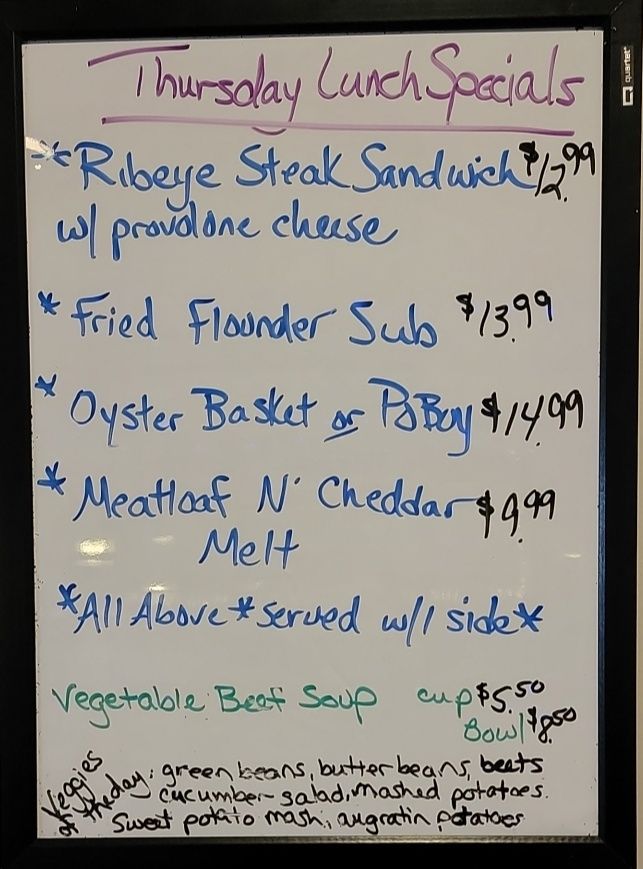 Thursday Lunch Specials
*Ribeye Steak Sandwich $12.99
w/ provolone cheese
* Fried Flounder Sub $13.99
* Oyster Basket or PoBoy $14.99
* Meatloaf N' Cheddar $9.99
Melt
*All Above* served w/1 side*
Vegetable Beef Soup cup $5.50
Bowl $8.50
Veggies of the day: green beans, butter beans, beets
cucumber salad, mashed potatoes.
Sweet potato mash, augratin potatoes
quartet